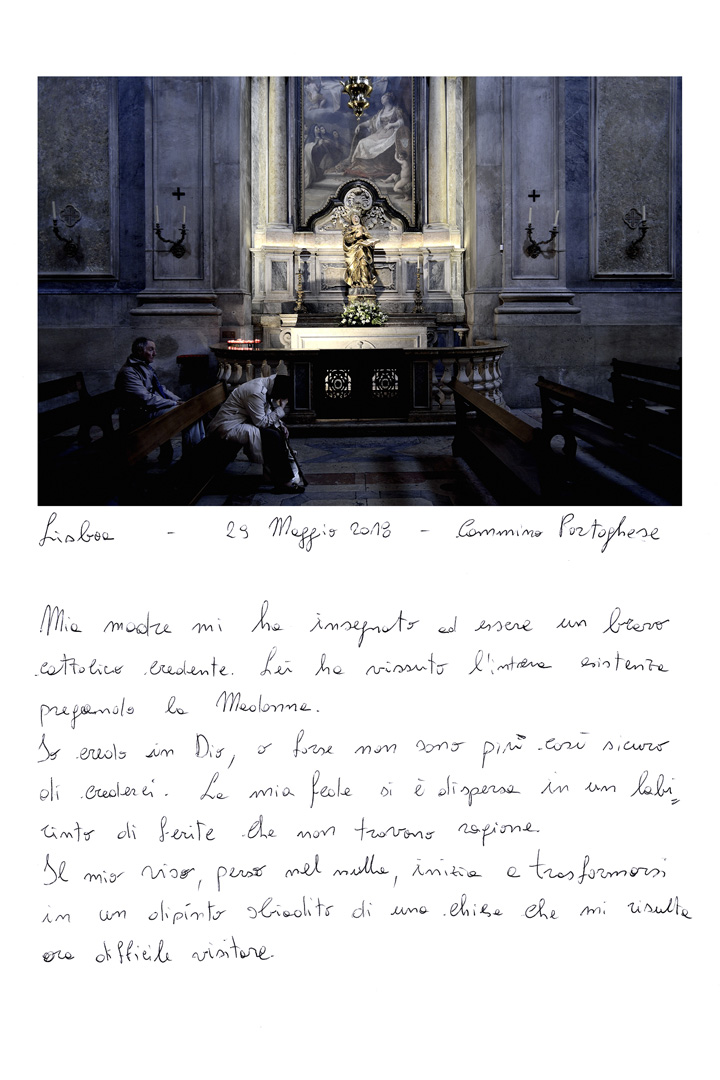 Lisboa - 29 Maggio 2018 - Cammino Portoghese
Mia madre mi ha insegnato ad essere un bravo
cattolico credente. Lei ha vissuto l'intera esistenza
pregando la Madonna.
Io credo in Dio, o forse non sono più così sicuro
di crederci. La mia fede si è dispersa in un labi=
rinto di ferite che non trovano ragione.
Il mio viso, perso nel nulla, inizia a trasformarsi
in un dipinto sbiadito di una chiesa che mi risulta
ora difficile visitare.